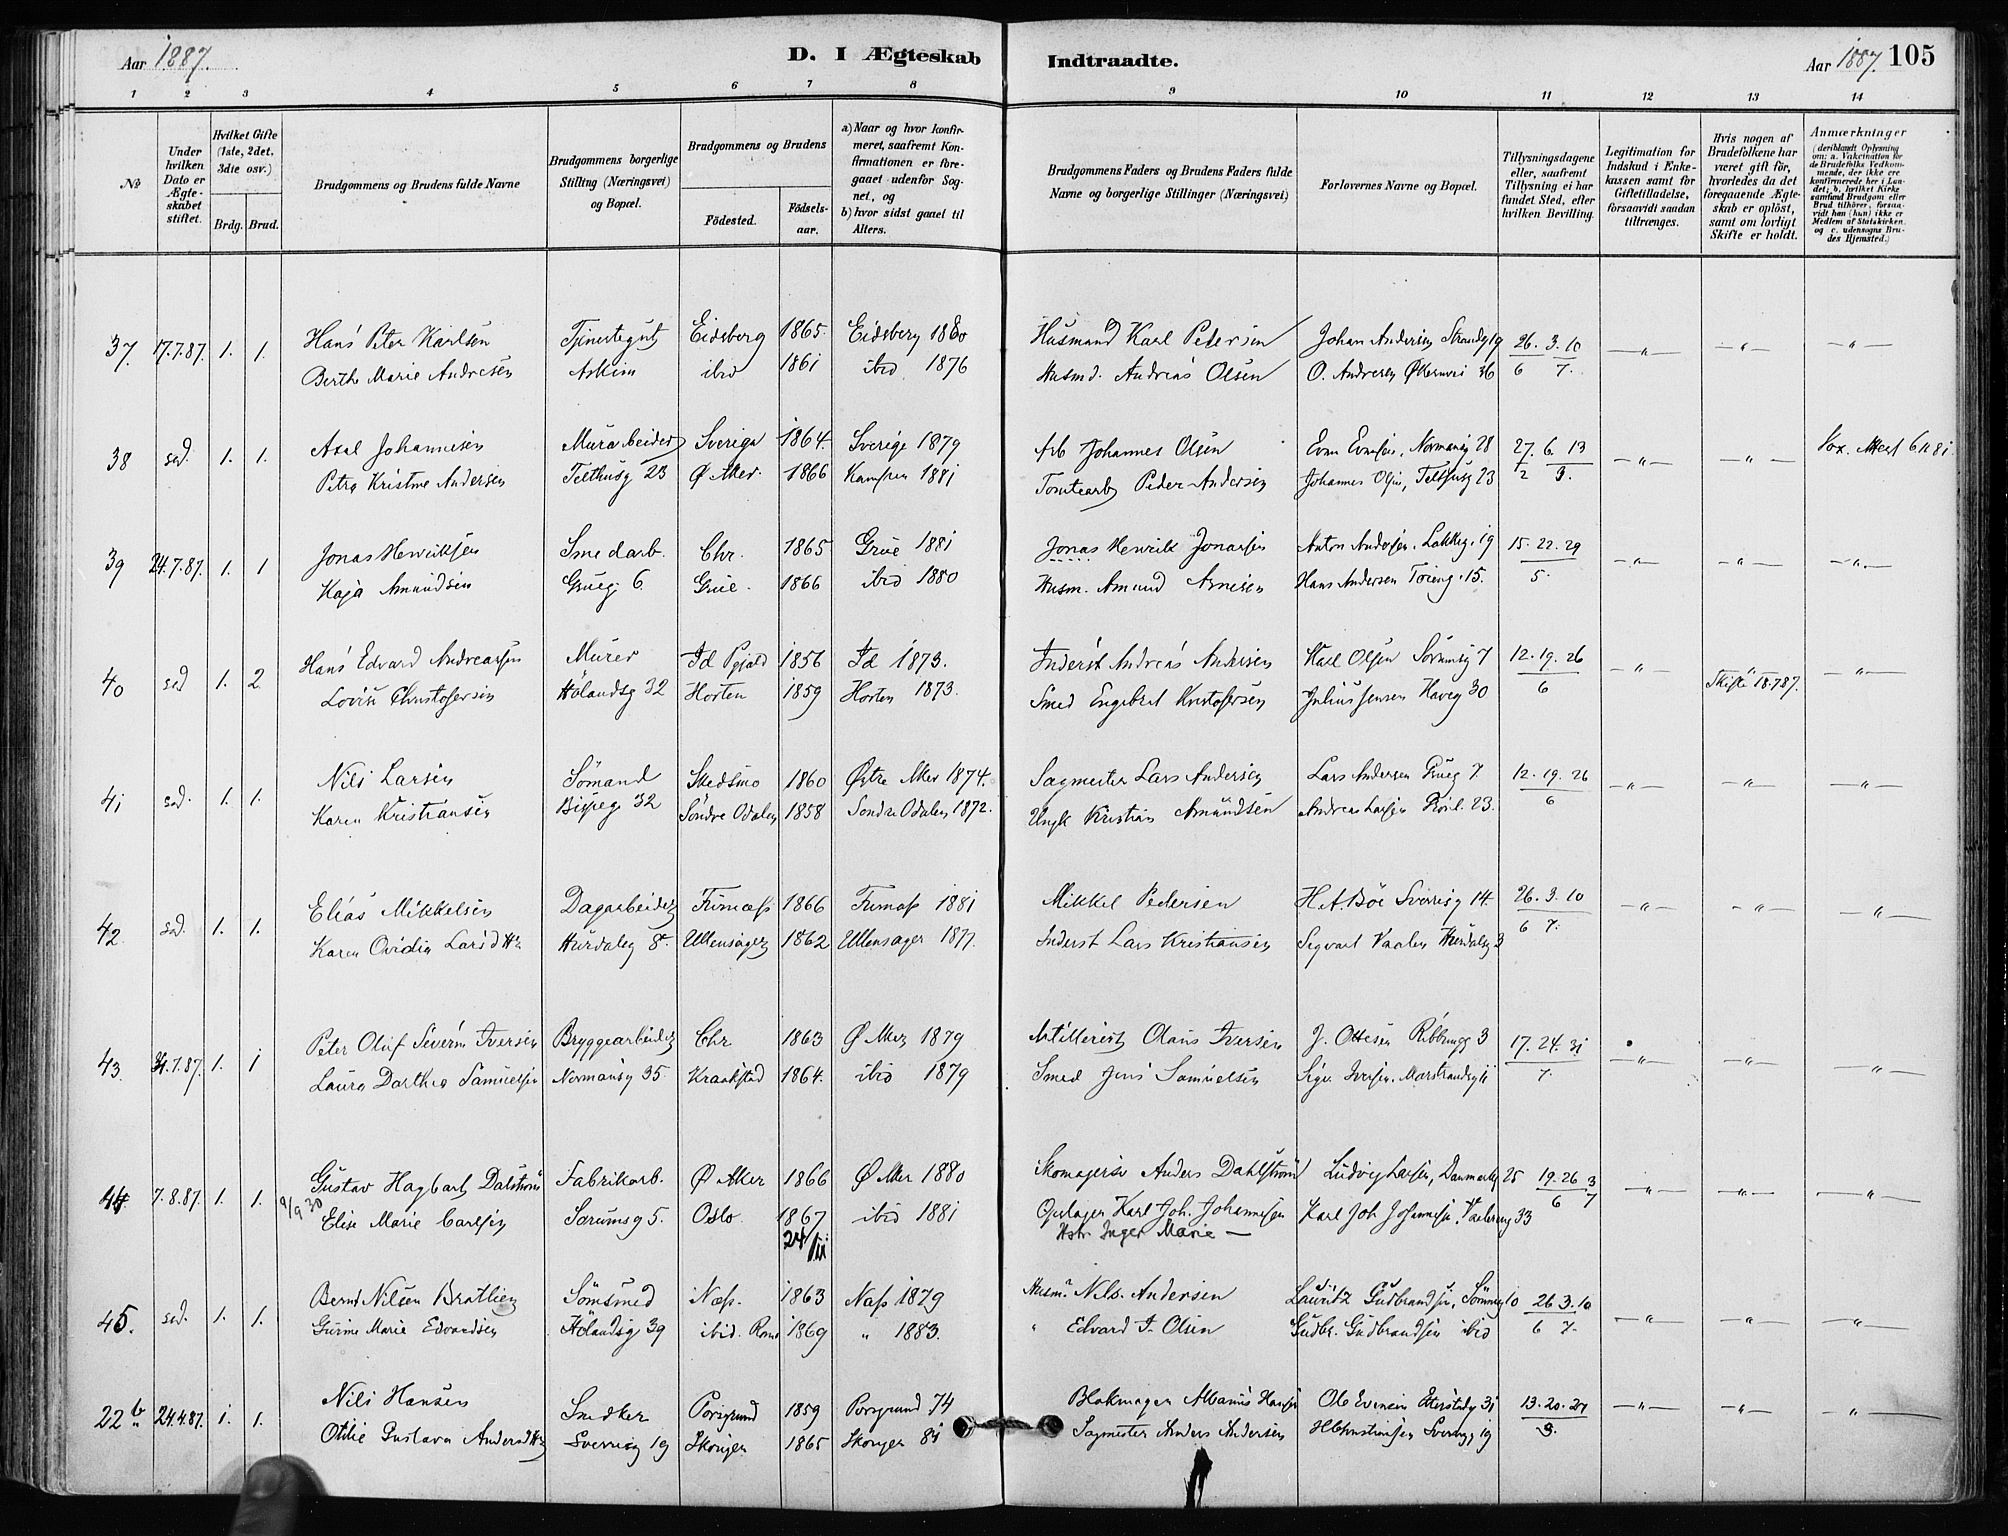 Aar 1887.
D. I Ægteskab Indtraadte.
Aar 1887. 105
1 2 3 4 5 6 7 8 9 10 11 12 13 14
No
Under hvilken Dato er Ægteskabet stiftet.
Hvilket Gifte (1ste, 2det, 3die osv.)
Brdg. Brud.
Brudgommens og Brudens fulde Navne
Brudgommens borgerlige Stilling (Næringsvei) og Bopæl.
Brudgommens og Brudens
Födested. Födsels-aar.
a) Naar og hvor konfirmeret, saafremt Konfirmationen er foregaaet udenfor Sognet, og
b) hvor sidst gaaet til Alters.
Brudgommens Faders og Brudens Faders fulde Navne og borgerlige Stillinger (Næringsvei)
Forlovernes Navne og Bopæl.
Tillysningsdagene eller, saafremt Tillysning ei har fundet Sted, efter hvilken Bevilling.
Legitimation for Indskud i Enkekassen samt for Giftetilladelse, forsaavidt saadan tiltrænges.
Hvis nogen af Brudefolkene har været gift før, hvorledes da det foregaaende Ægteskab er oplöst, samt om lovligt Skifte er holdt.
Anmærkninger (deriblandt Oplysning om: a. Vakcination for de Brudefolks Vedkommende, der ikke ere konfirmerede her i Landet; b. hvilket Kirkesamfund Brudgom eller Brud tilhörer, forsaavidt han (hun) ikke er Medlem af Statskirken, og c. udensogns Brudes Hjemsted.)
37. 17.7.87. 1. 1. Hans Peter Karlsen Tjenestegut Eidsberg 1865. Eidsberg 1880 Husmand Karl Pedersen Johan Andersen Strandg 19 26. 3. 10
Berthe Marie Andresen Askim ibid 1861 ibid 1876 Husmd. Andreas Olsen O. Andresen Økernvei 36 6 7.
38 sad. 1. 1. Axel Johannesen Murarbeider Sverige 1864. Sverige 1879 Arb Johannes Olsen Even Evensen, Normansg 28 27. 6. 13
Petra Kristine Andersen Telthusg 23 Ø Aker. 1866 Kampen 1881 Tomtearb Peder Andersen Johannes Olsen, Telthusg 23
39 24.7.87. 1. 1 Jonas Henriksen Smedarb. Chr. 1865 Grue 1881 Jonas Henrik Jonassen Anton Andersen, Lakkeg. 19 15. 22. 29
Kaja Amundsen Grueg. 6. Grue. 1866 ibid 1880 Husm. Amund Arnesen Hans Andersen Töieng. 15. 5.
40 sad 1. 2. Hans Edvard Andreassen Murer Id 1856 Id 1873. Inderst Andreas Andersen Karl Olsen Sörumsg 7 12. 19. 26
Lovise Christofersen Hölandsg 32 Horten 1859 Horten 1873. Smed Engebret Kristofersen Julius Jensen Haveg 30 6 Skifte 18.7.87.
41 sad. 1. 1. Nils Larsen Sömand Skedsmo 1860 Østre Aker 1874. Sagmester Lars Andersen Lars Andersen Grueg 7 12. 19. 26
Karen Kristiansen Bispeg. 32 Söndre Odalen 1858 Söndre Odalen 1872. Ungk Kristian Amundsen Andreas Larsen 23. 6
42. sad. 1. 1. Elias Mikkelsen Dagarbeider Furnæss 1866 Furnæss 1881 Mikkel Pedersen H.A. Böe Sverresg 14. 26. 3. 10
Karen Ovidia Larsdtr Hurdalsg 8. Ullensager 1862 Ullensager 1877. Inderst Lars Kristiansen Segvart Hurdalsg 3 6 7.
43. 31.7.87. 1. 1 Peter Oluf Severin Iversen Bryggearbeider Chr 1863 Ø Aker 1879 Artillerist Olaus Iversen J. Ottesen 3 17. 24. 31
Laura Dorthea Samuelsen Normansg 35. Kraakstad 1864. ibid 1879 Smed Jens Samuelsen Iversen. Marstrandsg 11 7.
44 7.8.87. 1. 1. Gustav Hagbart Dalström Fabrikarb. Ø Aker 1866 Ø Aker 1880 Skomagersv Anders Dahlström Ludvig Larsen, Danmarksg 25 19. 26 3
9/9 30 Elise Marie Carlsen Sørumsg 5. Oslo 1867 ibid 1881 Opslager Karl Joh. Johannesen Karl Joh Johannesen, Vaalereng 33 6 7
24/11 Hstr. Inger Marie —
45. sad. 1. 1. Bernt Nilsen Bratlien Sömsmed Næs. 1863 Næss 1879 Husm. Nils Andersen Lauritz Gudbrandsen, 10 26. 3. 10
Gurine Marie Edvardsen Hölandsg 39 ibid. Rom 1869 " 1883. " Edvard T. Olsen Gudbr. Gudbrandsen ibid 6 7.
22b 24.4.87. 1. 1. Nils Hansen Snedker Porsgrund 1859 Porsgrund 74 Blokmager Albanus Hansen Ole Evensen Etterstadg 31 13. 20. 27
Otilie Gustava Andersdtr Sverresg 19 Skonger 1865 Skonger 81 Sagmester Anders Andersen H Christiansen Sverresg 19 3.